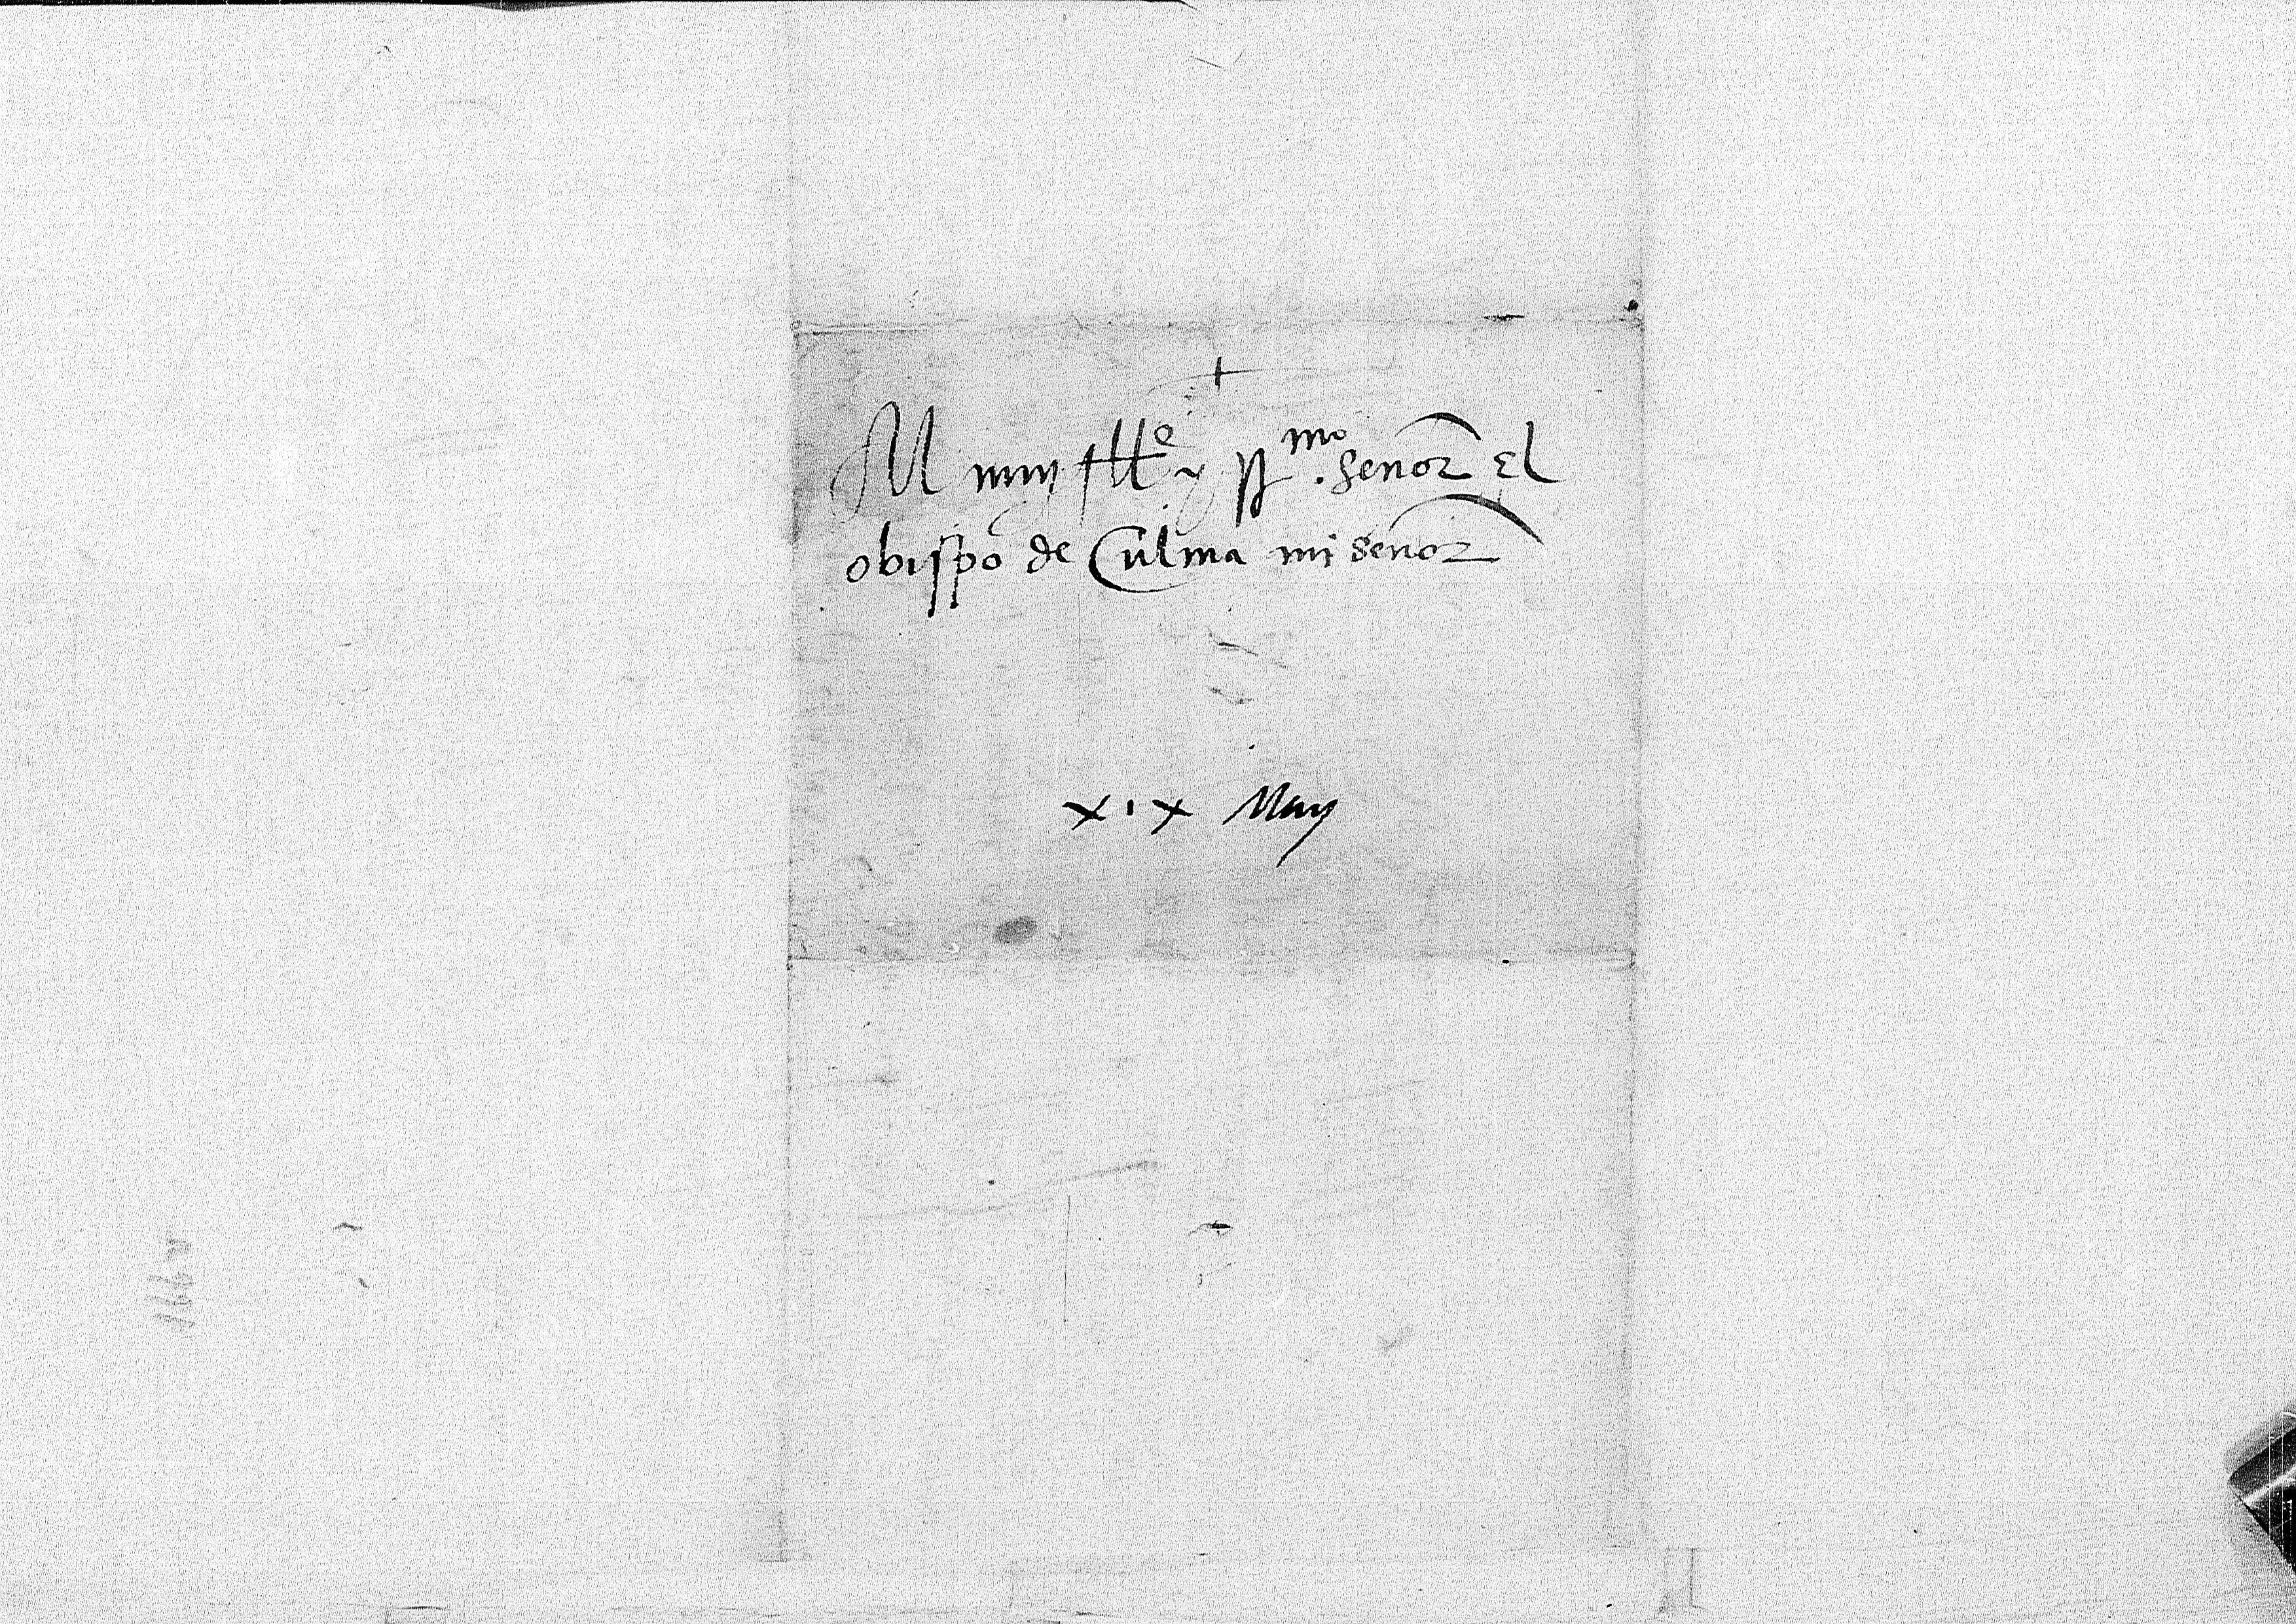 †
Al muy Ille y Rmo. señor El
obispo de Culma mi señor
xix May